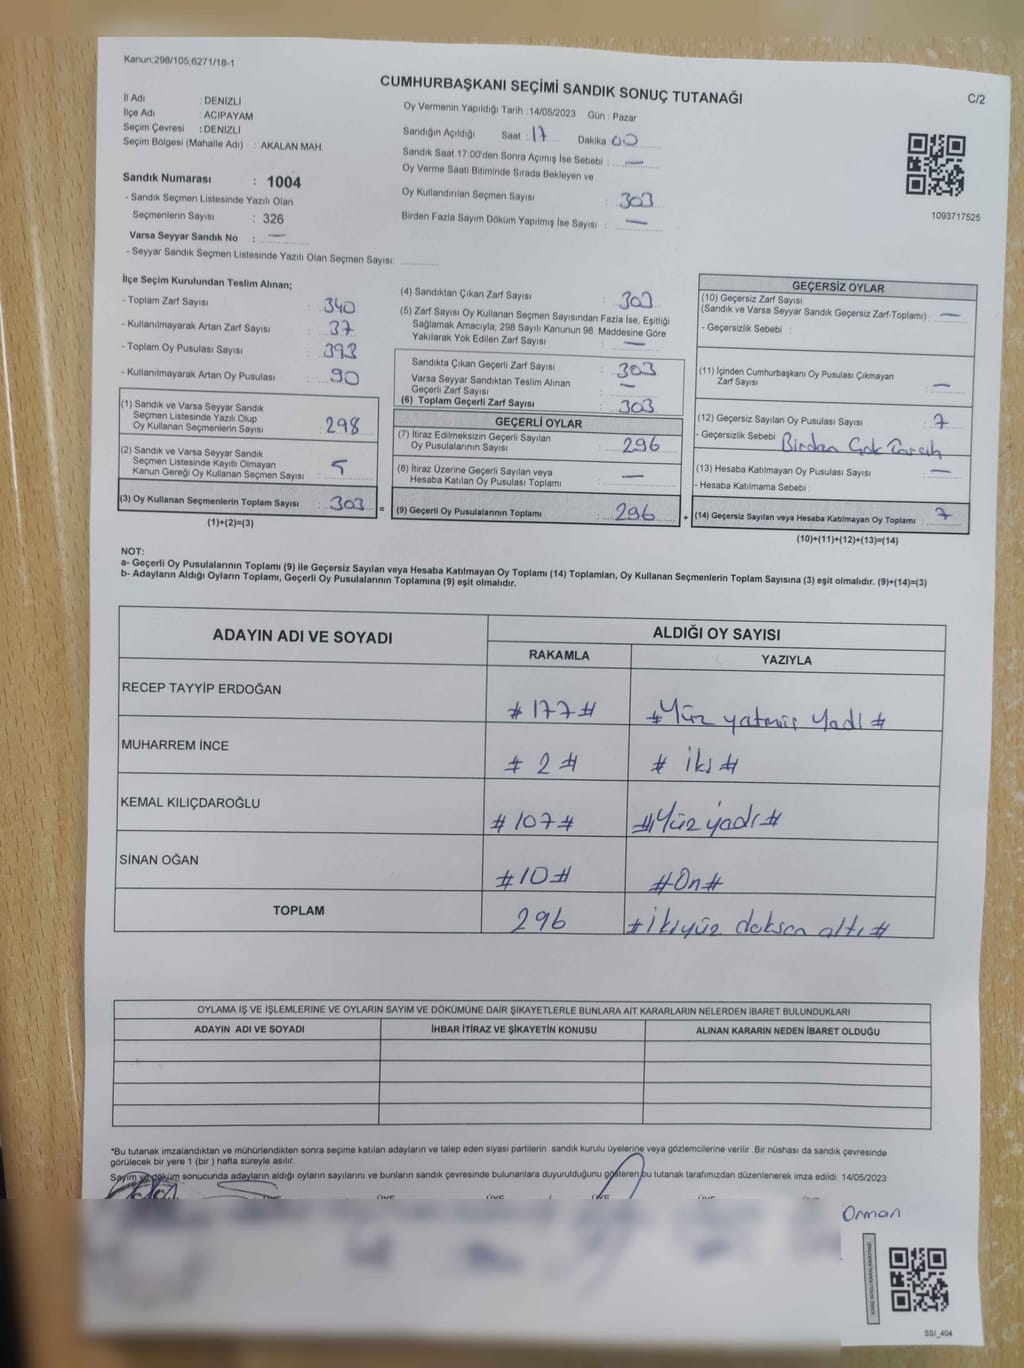 Kanun;298/105;6271/18-1
CUMHURBAŞKANI SEÇİMİ SANDIK SONUÇ TUTANAĞI
C/2
İl Adı : DENİZLİ
İlçe Adı : ACIPAYAM
Seçim Çevresi : DENİZLİ
Seçim Bölgesi (Mahalle Adı) : AKALAN MAH.
Sandık Numarası : 1004
- Sandık Seçmen Listesinde Yazılı Olan
Seçmenlerin Sayısı : 326
Varsa Seyyar Sandık No : —
- Seyyar Sandık Seçmen Listesinde Yazılı Olan Seçmen Sayısı:
Oy Vermenin Yapıldığı Tarih : 14/05/2023 Gün : Pazar
Sandığın Açıldığı Saat : 17 Dakika : 00
Sandık Saat 17:00'den Sonra Açımış İse Sebebi : —
Oy Verme Saati Bitiminde Sırada Bekleyen ve
Oy Kullandırılan Seçmen Sayısı : 303
Birden Fazla Sayım Döküm Yapılmış İse Sayısı : —
1093717525
İlçe Seçim Kurulundan Teslim Alınan;
- Toplam Zarf Sayısı : 340
- Kullanılmayarak Artan Zarf Sayısı : 37
- Toplam Oy Pusulası Sayısı : 393
- Kullanılmayarak Artan Oy Pusulası : 90
(1) Sandık ve Varsa Seyyar Sandık
Seçmen Listesinde Yazılı Olup
Oy Kullanan Seçmenlerin Sayısı : 298
(2) Sandık ve Varsa Seyyar Sandık
Seçmen Listesinde Kayıtlı Olmayan
Kanun Gereği Oy Kullanan Seçmen Sayısı : 5
(3) Oy Kullanan Seçmenlerin Toplam Sayısı : 303 =
(1)+(2)=(3)
(4) Sandıktan Çıkan Zarf Sayısı : 303
(5) Zarf Sayısı Oy Kullanan Seçmen Sayısından Fazla İse, Eşitliği
Sağlamak Amacıyla; 298 Sayılı Kanunun 98. Maddesine Göre
Yakılarak Yok Edilen Zarf Sayısı : —
Sandıkta Çıkan Geçerli Zarf Sayısı : 303
Varsa Seyyar Sandıktan Teslim Alınan
Geçerli Zarf Sayısı : —
(6) Toplam Geçerli Zarf Sayısı : 303
GEÇERLİ OYLAR
(7) İtiraz Edilmeksizin Geçerli Sayılan
Oy Pusulalarının Sayısı : 296
(8) İtiraz Üzerine Geçerli Sayılan veya
Hesaba Katılan Oy Pusulası Toplamı : —
(9) Geçerli Oy Pusulalarının Toplamı : 296 +
GEÇERSİZ OYLAR
(10) Geçersiz Zarf Sayısı
(Sandık ve Varsa Seyyar Sandık Geçersiz Zarf Toplamı) : —
- Geçersizlik Sebebi :
(11) İçinden Cumhurbaşkanı Oy Pusulası Çıkmayan
Zarf Sayısı : —
(12) Geçersiz Sayılan Oy Pusulası Sayısı : 7
- Geçersizlik Sebebi : Birden Çok Tercih
(13) Hesaba Katılmayan Oy Pusulası Sayısı : —
- Hesaba Katılmama Sebebi :
(14) Geçersiz Sayılan veya Hesaba Katılmayan Oy Toplamı : 7
(10)+(11)+(12)+(13)=(14)
NOT:
a- Geçerli Oy Pusulalarının Toplamı (9) ile Geçersiz Sayılan veya Hesaba Katılmayan Oy Toplamı (14) Toplamları, Oy Kullanan Seçmenlerin Toplam Sayısına (3) eşit olmalıdır. (9)+(14)=(3)
b- Adayların Aldığı Oyların Toplamı, Geçerli Oy Pusulalarının Toplamına (9) eşit olmalıdır.
ADAYIN ADI VE SOYADI ALDIĞI OY SAYISI
RAKAMLA YAZIYLA
RECEP TAYYİP ERDOĞAN #177# #Yüz yetmiş Yedi#
MUHARREM İNCE #2# #iki#
KEMAL KILIÇDAROĞLU #107# #Yüz yedi#
SİNAN OĞAN #10# #On#
TOPLAM 296 #ikiyüz doksan altı#
OYLAMA İŞ VE İŞLEMLERİNE VE OYLARIN SAYIM VE DÖKÜMÜNE DAİR ŞİKAYETLERLE BUNLARA AİT KARARLARIN NELERDEN İBARET BULUNDUKLARI
ADAYIN ADI VE SOYADI İHBAR İTİRAZ VE ŞİKAYETİN KONUSU ALINAN KARARIN NEDEN İBARET OLDUĞU
*Bu tutanak imzalandıktan ve mühürlendikten sonra seçime katılan adayların ve talep eden siyasi partilerin sandık kurulu üyelerine veya gözlemcilerine verilir .Bir nüshası da sandık çevresinde
görülecek bir yere 1 (bir ) hafta süreyle asılır.
Sayım ve döküm sonucunda adayların aldığı oyların sayılarını ve bunların sandık çevresinde bulunanlara duyurulduğunu gösteren bu tutanak tarafımızdan düzenlenerek imza edildi. 14/05/2023
Orman
SSI_404